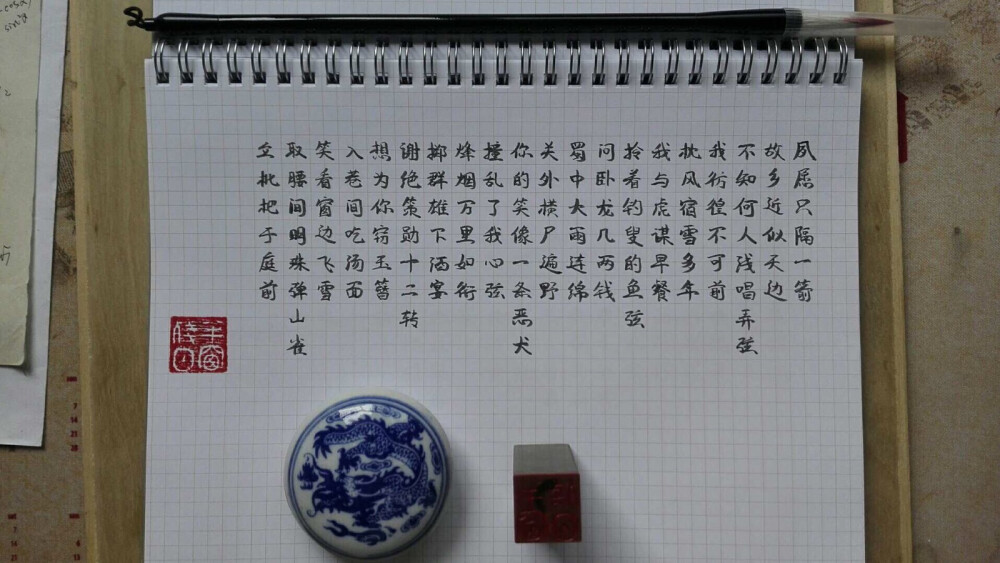 夙愿只隔一箭
故乡近似天边
不知何人浅唱弄弦
我彷徨不可前
枕风宿雪多年
我与虎谋早餐
拎着钓叟的鱼弦
问卧龙几两钱
蜀中大雨连绵
关外横尸遍野
你的笑像一条恶犬
撞乱了我心弦
烽烟万里如衔
掷群雄下酒宴
谢绝策勋十二转
想为你窃玉簪
入巷间吃汤面
笑看窗边飞雪
取腰间明珠弹山雀
立枇杷于庭前